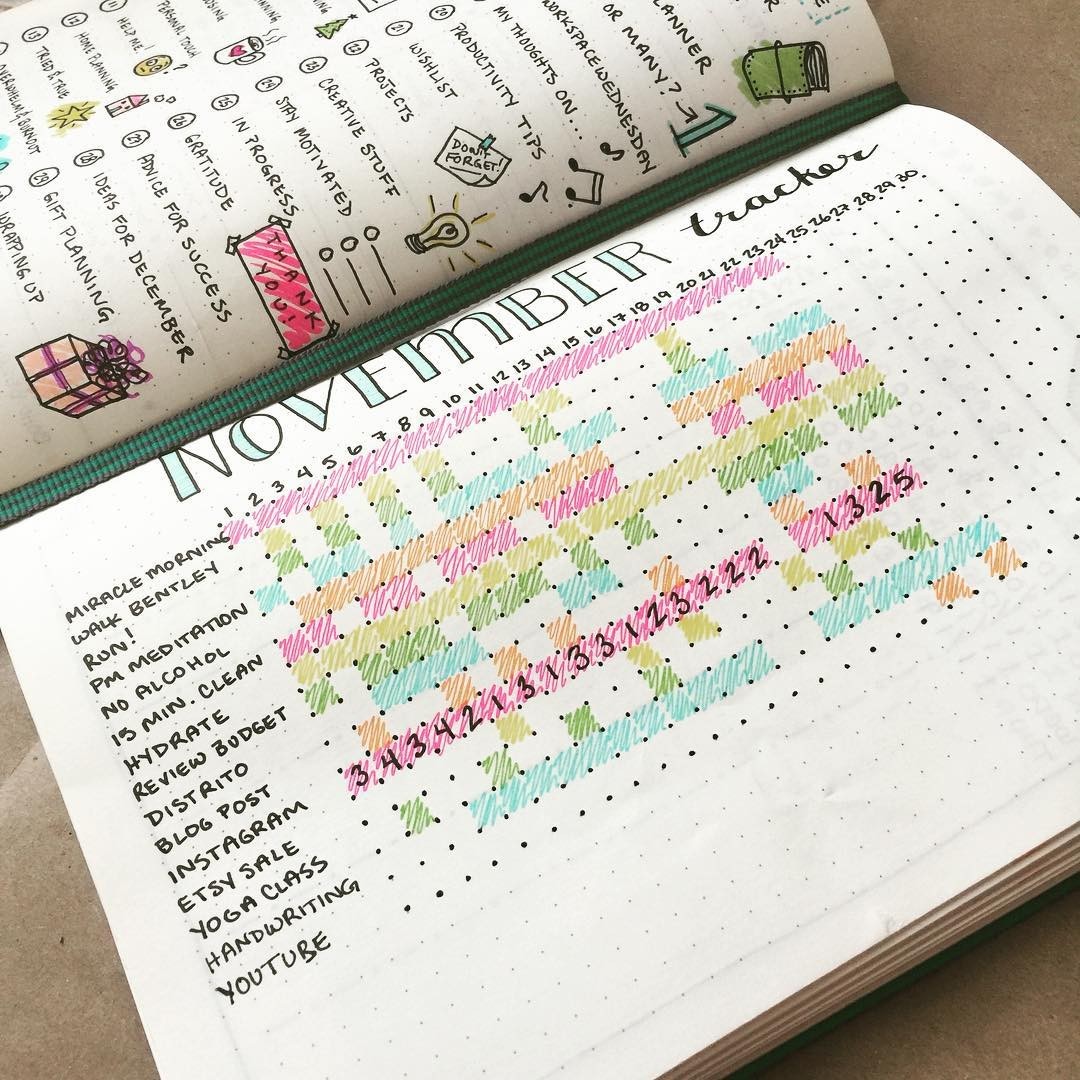 PERSONAL TOUCH
HELP ME!
?
HOME PLANNING
TRIED & TRUE
OVERWHELM & BURNOUT
PLANNER
OR MANY? → 1
WORKSPACEWEDNESDAY
MY THOUGHTS ON...
20 PRODUCTIVITY TIPS
21 WISHLIST
DON'T FORGET!
22 PROJECTS
23 CREATIVE STUFF
24 STAY MOTIVATED
25 IN PROGRESS
26 GRATITUDE
THANK YOU!
ADVICE FOR SUCCESS
28 IDEAS FOR DECEMBER
29 GIFT PLANNING
WRAPING UP
NOVEMBER tracker
1 2 3 4 5 6 7 8 9 10 11 12 13 14 15 16 17 18 19 20 21 22 23 24 25 26 27 28 29 30
MIRACLE MORNING
WALK BENTLEY
RUN!
PM MEDITATION
NO ALCOHOL
15 MIN. CLEAN
HYDRATE
REVIEW BUDGET
DISTRITO
BLOG POST
INSTAGRAM 3 4 3 4 2 1 3 1 3 3 1 2 3 2 2 2 1 3 2 5
ETSY SALE
YOGA CLASS
HANDWRITING
YOUTUBE